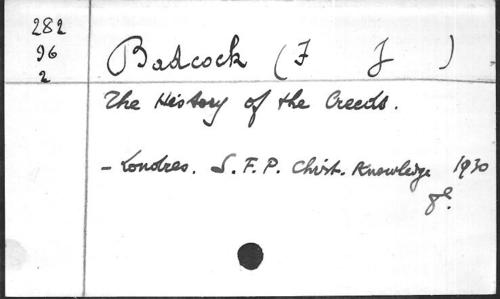 282
96
2
Badcock (F J )
The History of the Creeds.
- Londres. S. F. P. Christ. Knowledge 1930
8º.